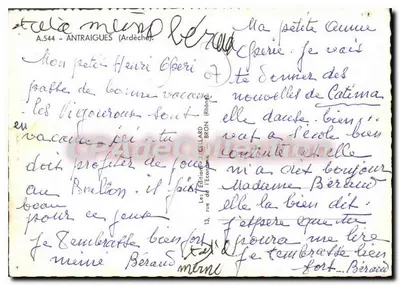 Bérau
A.544 - ANTRAIGUES (Ardèche)
Mon petit Henri chéri
passe de bonne vacance
les Vigouroux sont
en vacance ici tu
doit profiter de jouer
au Ballon. il fait
beau
pour ce jeux
je t'embrasse bien fort
mémé Béraud
Les Editions GELLARD
rue de l'Economie - BRON (Rhône)
Ma petite
chérie. Je vais
te donner des
nouvelles de Catina
elle danse bien
vent a l'école bien
contente et elle
m'a dit bonjour
Madame Béraud
elle la bien dit.
j'espère que tu
poura me lire
je t'embrasse bien
fort Béraud
mémé